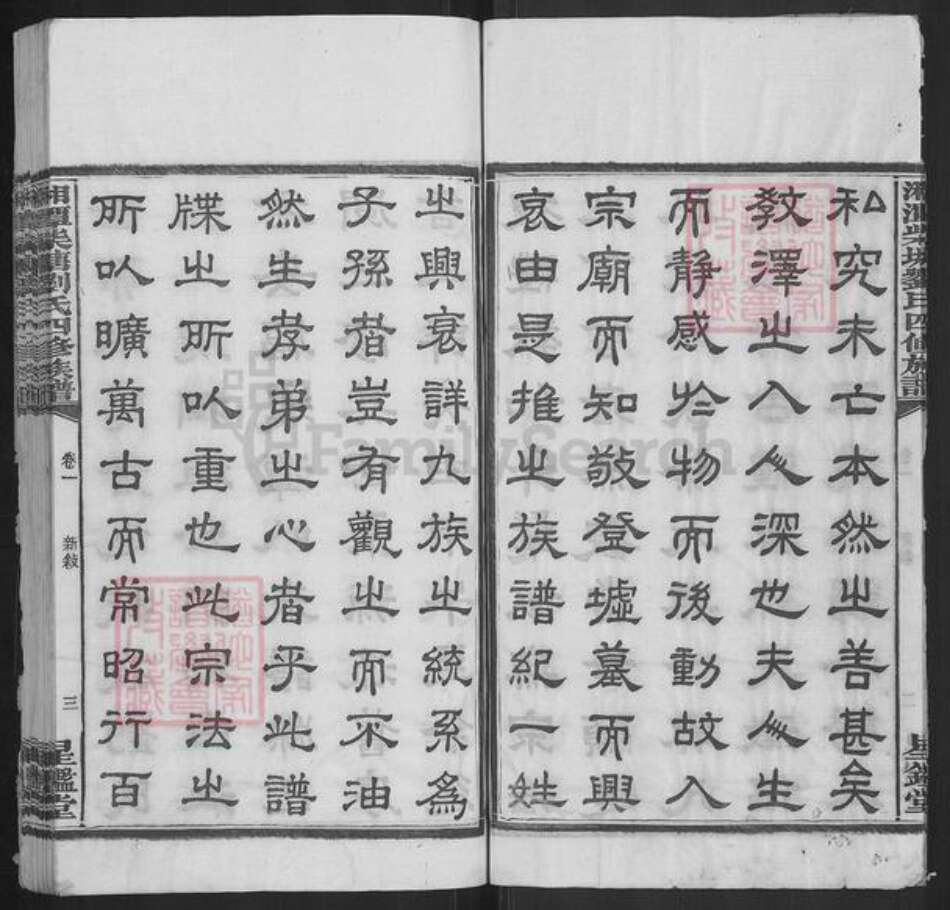 私究未亡本然之善甚矣
教澤之入人深也夫人生
而靜感於物而後動故入
宗廟而知敬登墟墓而興
哀由是推之族譜紀一姓
之興衰詳九族之統系為
子孫者豈有觀之而不油
然生孝弟之心者乎此譜
牒之所以重也此宗法之
所以曠萬古而常昭行百
湘潭柴塘劉氏四修族譜
卷一
新敘
三
星鑑堂
FamilySearch